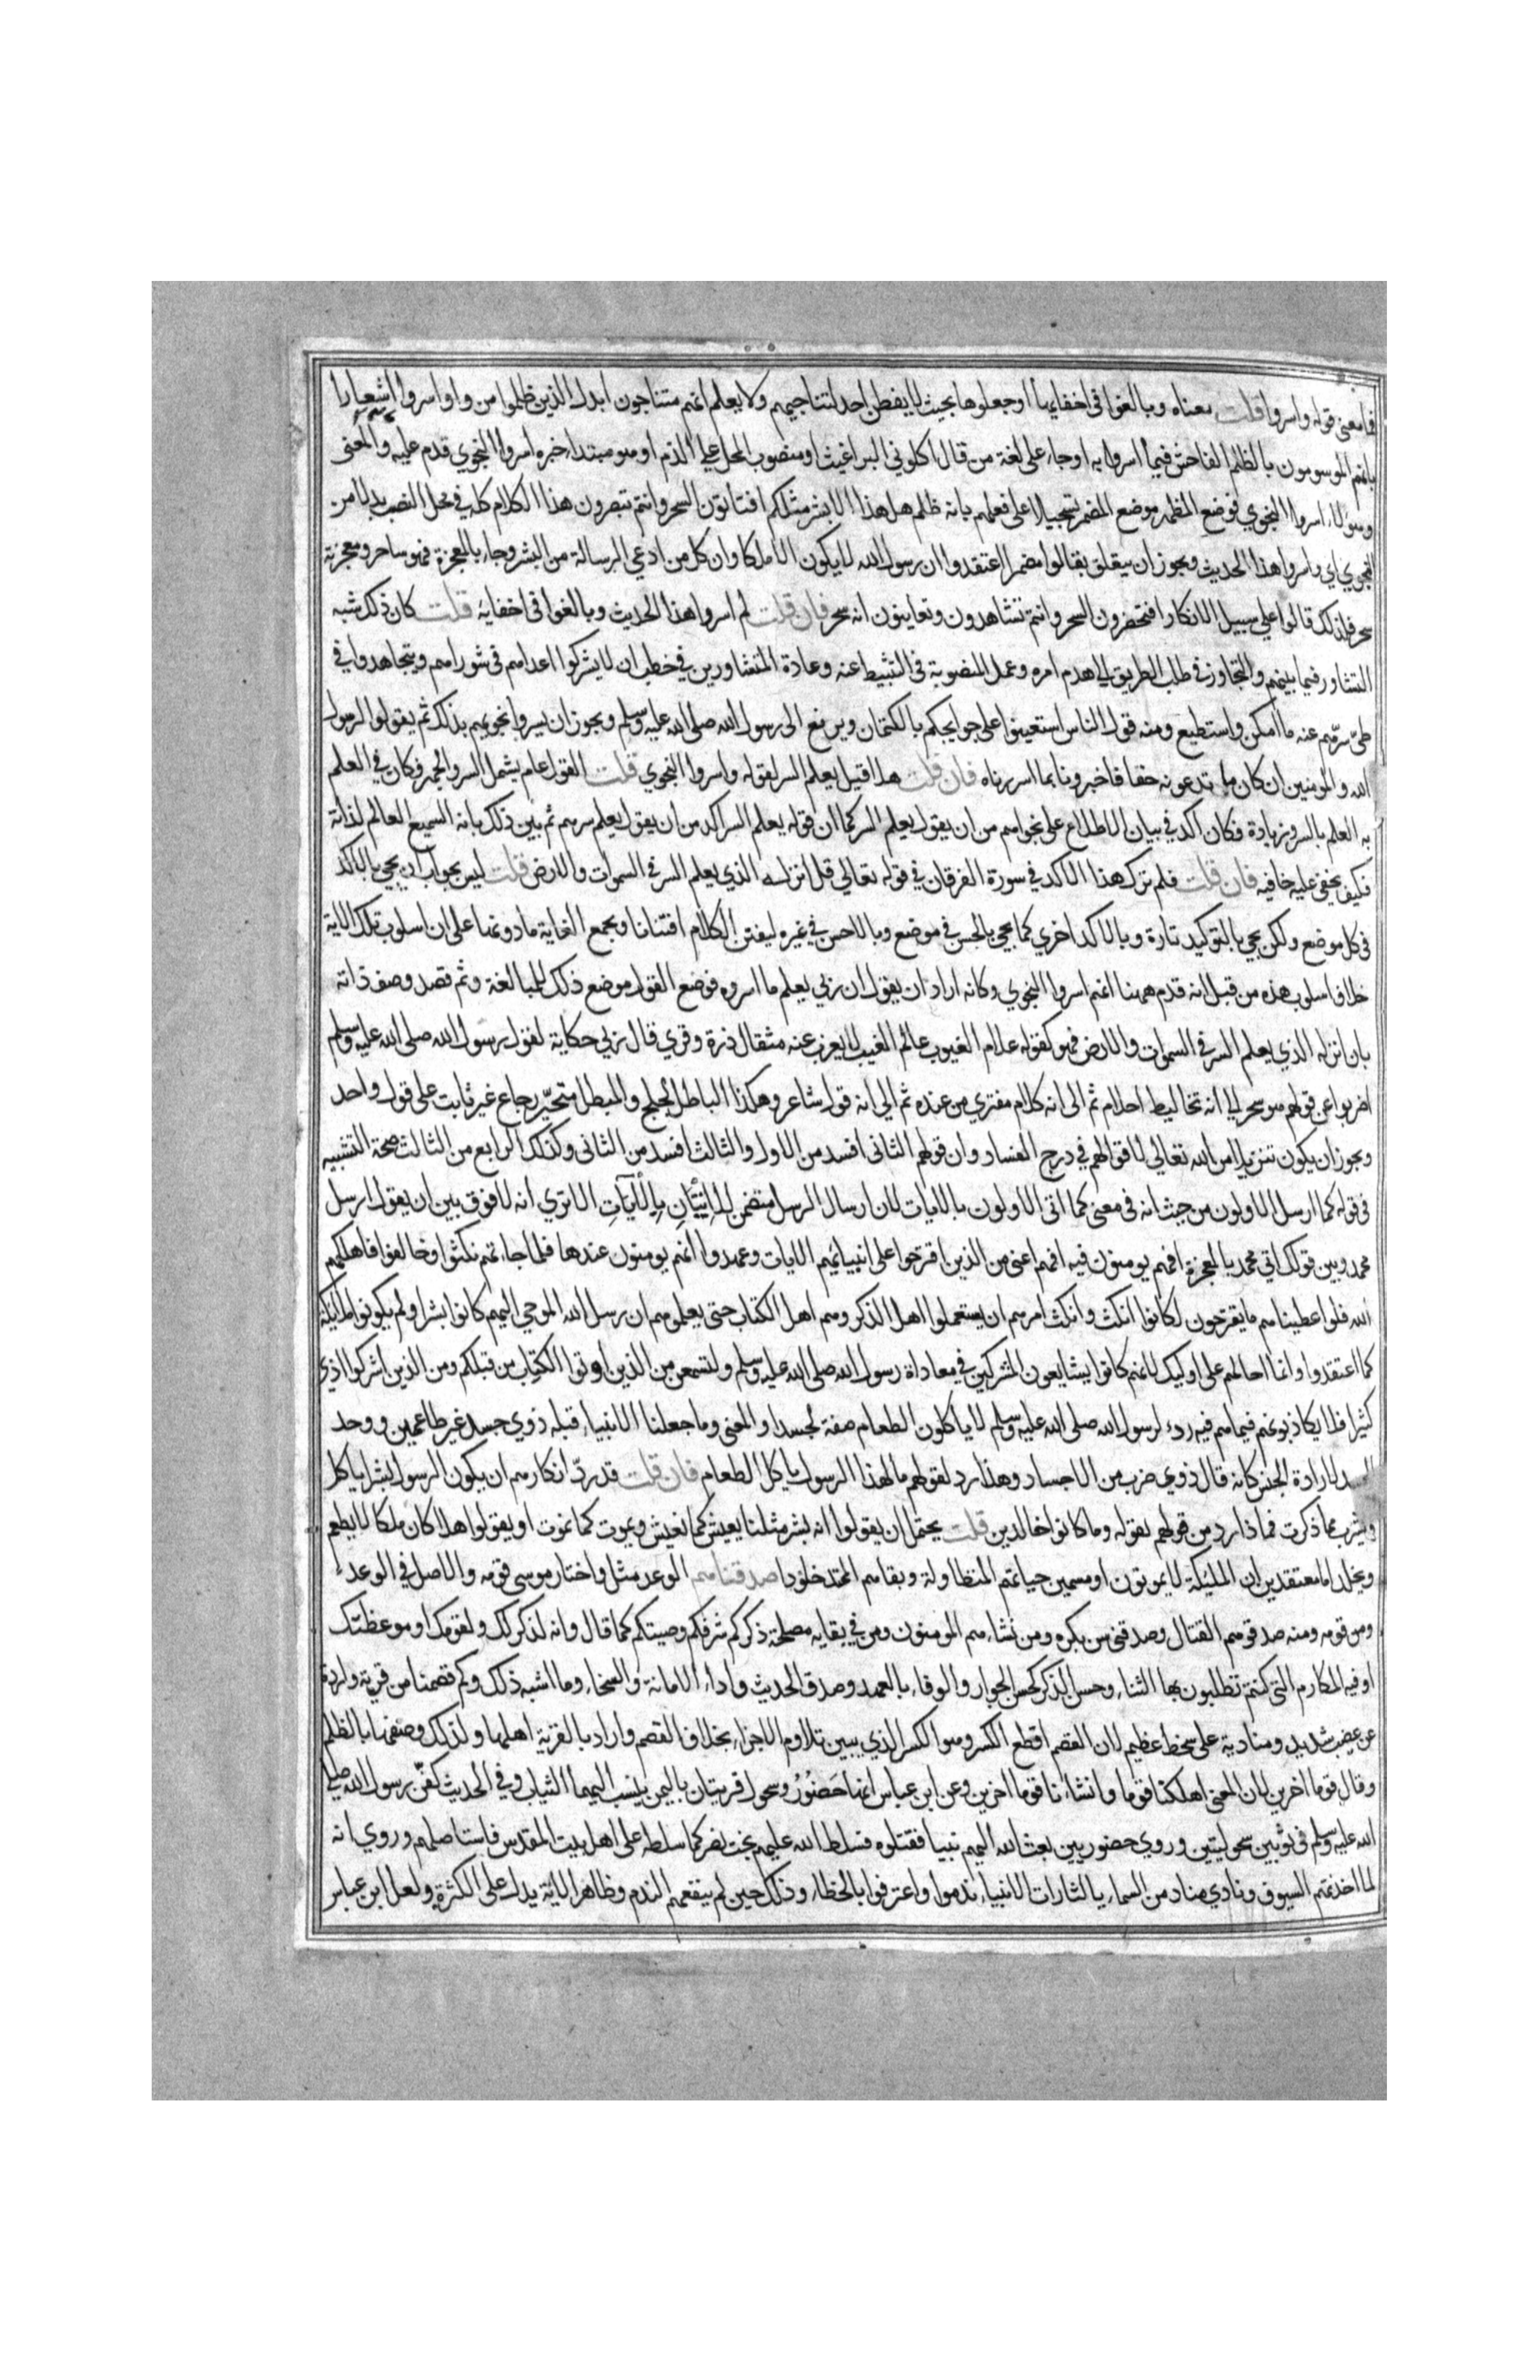 فما معنى قوله واسروا قلت معناه وبالغوا في اخفايها او جعلوها بحيث لا يفطن احد لتناجيهم ولا يعلم انهم متناجون ابدل الذين ظلموا من واو اسروا اشعارا
بانهم الموسومون بالظلم الفاحش فيما اسروا به او جاء على لغة من قال اكلوني البراغيث او منصوب المحل على الذم او هو مبتداء خبره اسروا النجوي قدم عليه والمعنى
وهؤلاء اسروا النجوي فوضع المظهر موضع المضمر تسجيلا على فعلهم بانه ظلم هل هذا الا بشر مثلكم افتاتون السحر وانتم تبصرون هذا الكلام كله في محل النصب بدلا من
النجوي اي واسروا هذا الحديث ويجوز ان يتعلق بقالوا مضمرا اعتقدوا ان رسول الله لا يكون الا ملكا وان كل من ادعي الرسالة من البشر وجاء بالمعجزة فهو ساحر ومعجزته
سحر فلذلك قالوا على سبيل الانكار افتحضرون السحر وانتم تشاهدون وتعاينون انه سحر فان قلت لم اسروا هذا الحديث وبالغوا في اخفايه قلت كان ذلك شبه
التشاور فيما بينهم والتجاوز في طلب الطريق الى هدم امره وعمل المنصوبة في التثبيط عنه وعادة المتشاورين في خطب ان لا يشركوا اعداهم في شوراهم ويتجاهدوا في
طي سرهم عنهم ما امكن واستطيع ومنه قول الناس استعينوا على حوايجكم بالكتمان ويرفع الى رسول الله صلى الله عليه وسلم ويجوز ان يسروا نجويهم بذلك ثم يقولوا لرسول
الله والمومنين ان كان ما تدعونه حقا فاخبرونا بما اسررناه فان قلت هلا قيل يعلم السر لقوله واسروا النجوي قلت القول عام يشمل السر والجهر فكان في العلم
به العلم بالسر وزيادة فكان اكد في بيان الاطلاع على نجواهم من ان يقول يعلم السر كما ان قوله يعلم السر اكد من ان يقول يعلم سرهم ثم بين ذلك بانه السميع العالم لذاته
فكيف يخفى عليه خافيه فان قلت فلم ترك هذا الاكد في سورة الفرقان في قوله تعالي قل انزله الذي يعلم السر في السموات والارض قلت ليس بواجب ان يجي بالاكد
في كل موضع ولكن يجي بالتوكيد تارة وبالاكد اخري كما يجي بالحسن في موضع وبالاحسن في غيره ليفتن الكلام افتنانا ويجمع الغاية وما دونها على ان اسلوب تلك الاية
خلاف اسلوب هذه من قبل انه قدم ههنا انهم اسروا النجوي وكانه اراد ان يقول ان ربي يعلم ما اسروه فوضع القول موضع ذلك للمبالغة وثم قصد وصف ذاته
بان انزله الذي يعلم السر في السموات والارض فهو كقوله علام الغيوب عالم الغيب لا يعزب عنه مثقال ذرة وقري قال ربي حكاية لقول رسول الله صلى الله عليه وسلم
اضربوا عن قولهم هو سحر الى انه تخاليط احلام ثم الى انه كلام مفتري من عنده ثم الى انه قول شاعر وهكذا الباطل لجلج والمبطل متحير رجاع غير ثابت على قول واحد
ويجوز ان يكون تنزيلا من الله تعالي لاقوالهم في درج الفساد وان قولهم الثاني افسد من الاول والثالث افسد من الثاني وكذلك الرابع من الثالث صحة التشبيه
في قوله كما ارسل الاولون من حيث انه في معنى كما اتى الاولون بالايات لان ارسال الرسل متضمن للاتيان بالايات الا تري انه لا فرق بين ان يقول ارسل
محمد وبين قولك اتي محمد بالمعجزة افهم يومنون فيه انهم اعتى من الذين اقترحوا على انبيايهم الايات وعهدوا انهم يومنون عندها فلما جاءتهم نكثوا وخالفوا فاهلكهم
الله فلو اعطيناهم ما يقترحون لكانوا انكث وانكث امرهم ان يستعملوا اهل الذكر وهم اهل الكتاب حتى يعلموهم ان رسل الله الموحي اليهم كانوا بشرا ولم يكونوا ملائكة
كما اعتقدوا وانما احالهم على اوليك لانهم كانوا يشايعون المشركين في معاداة رسول الله صلى الله عليه وسلم ولتسمعن من الذين اوتوا الكتاب من قبلكم ومن الذين اشركوا اذي
كثيرا فلا يكاذبونهم فيما هم فيه ردء لرسول الله صلى الله عليه وسلم لا ياكلون الطعام صفة لجسدا والمعنى وما جعلنا الانبياء قبله ذوي جسد غير طاعمين ووحد
الجسد لارادة الجنس كانه قال ذوي ضرب من الاجساد وهذا رد لقولهم ما لهذا الرسول ياكل الطعام فان قلت قد رد انكارهم ان يكون الرسول بشرا ياكل
ويشرب بما ذكرت فماذا رد من قولهم بقوله وما كانوا خالدين قلت يحتمل ان يقولوا انه بشر مثلنا يعيش كما نعيش ويموت كما نموت او يقولوا هلا كان ملكا لا يطعم
ويخلد اما معتقدين ان المليكة لا يموتون او مسمين حياتهم المتطاولة وبقاهم الممتد خلودا صدقناهم الوعد مثل واختار موسى قومه والاصل في الوعد
ومن قومه ومنه صدقوهم القتال وصدقني سن بكره ومن نشاء هم المومنون ومن في بقايه مصلحة ذكركم شرفكم وصيتكم كما قال وانه لذكر لك ولقومك او موعظتك
او فيه المكارم التي كنتم تطلبون بها الثناء وحسن الذكر كحسن الجوار والوفاء بالعهد وصدق الحديث واداء الامانة والسخاء وما اشبه ذلك وكم قصمنا من قرية واردة
عن غضب شديد ومنادية على سخط عظيم لان القصم اقطع الكسر وهو الكسر الذي يبين تلاوم الاجزاء بخلاف القصم واراد بالقرية اهلها ولذلك وصفها بالظلم
وقال قوما اخرين لان المعنى اهلكنا قوما وانشانا قوما اخرين وعن ابن عباس انها حضور وسحول قريتان باليمن ينسب اليهما الثياب وفي الحديث كفن رسول الله صلى
الله عليه وسلم في ثوبين سحوليتين وروي حضوريين بعث الله اليهم نبيا فقتلوه فسلط الله عليهم بخت نصر كما سلطه على اهل بيت المقدس فاستاصلهم وروي انه
لما اخذتهم السيوف ونادي مناد من السماء يا لثارات الانبياء ندموا واعترفوا بالخطاء وذلك حين لم ينفعهم الندم وظاهر الاية يدل على الكثرة ولعل ابن عباس